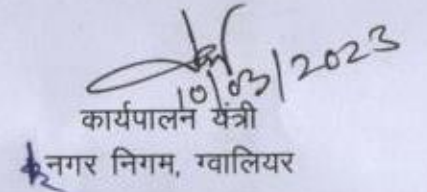 10/03/2023
कार्यपालन यंत्री
नगर निगम, ग्वालियर